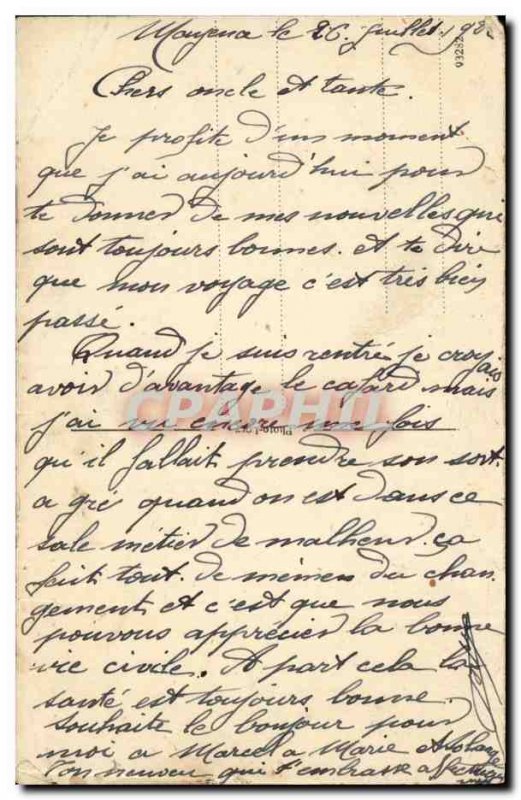 le 26 Juillet 198
93282
Chers oncle et tante.
Je profite d'un moment
que j'ai aujourd'hui pour
te donner de mes nouvelles qui
sont toujours bonnes. et te dire
que mon voyage c'est très bien
passé.
Quand je suis rentré je croyais
avoir d'avantage le cafard mais
j'ai vu encore une fois
CPAPHIL
qu'il fallait prendre son sort
a gré quand on est dans ce
sale métier de malheur. ça
fait tout de mêmes du chan-
gement et c'est que nous
pouvons apprécier la bonne
vie civile. A part cela la
santé est toujours bonne.
souhaite le bonjour pour
moi a Marcel a Marie et
Ton neveu qui t'embrasse